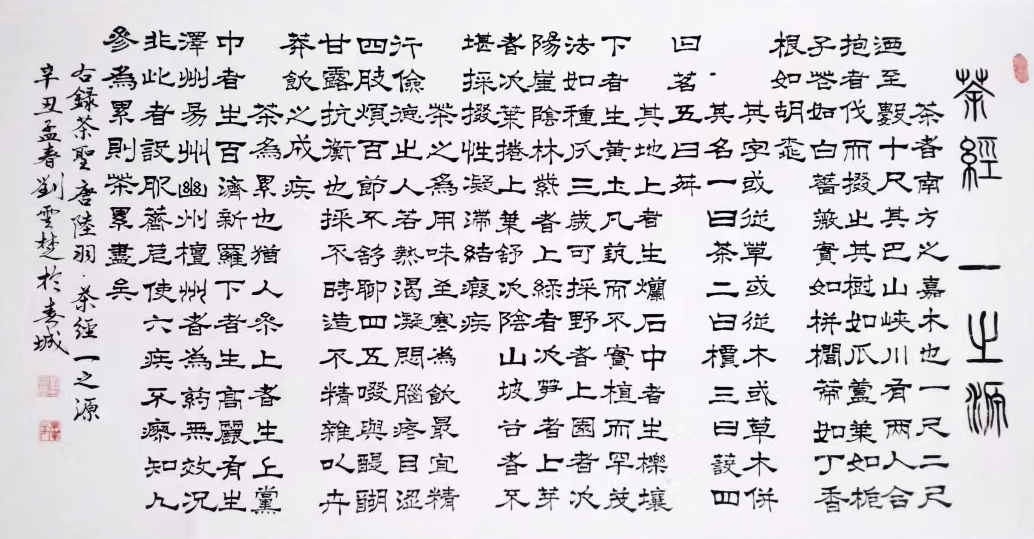 茶經 一之源
茶者南方之嘉木也一尺二尺
迺至數十尺其巴山峽川有兩人合
抱者伐而掇之其樹如瓜蘆葉如梔
子花如白薔薇實如栟櫚蒂如丁香
根如胡桃
其字或從草或從木或草木併
其名一曰茶二曰檟三曰蔎四
曰茗五曰荈
其地上者生爛石中者生櫟壤
下者生黃土凡藝而不實植而罕茂
法如種瓜三歲可採野者上園者次
陽崖陰林紫者上綠者次笋者上芽
者次葉捲上葉舒次陰山坡谷者不
堪採掇性凝滯結瘕疾
茶之為用味至寒為飲最宜精
行儉德之人若熱渴凝悶腦疼目澀
四肢煩百節不舒聊四五啜與醍醐
甘露抗衡也採不時造不精雜以卉
莽飲之成疾
茶為累也猶人參上者生上黨
中者生百濟新羅下者生高麗有生
澤州易州幽州檀州者為葯無效況
非此者設服薺苨使六疾不瘳知人
參為累則茶累盡矣
右錄茶聖唐陸羽·茶經一之源
辛丑孟春劉雲楚於春城